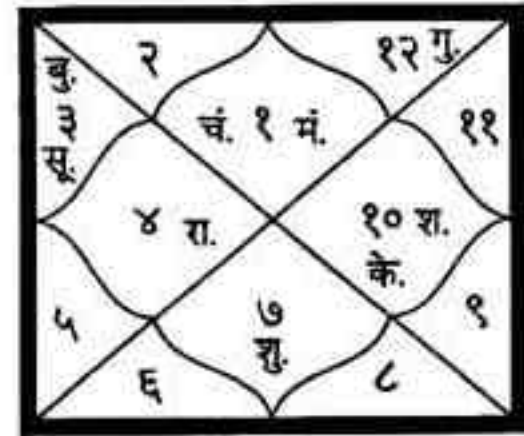 २
१२ गु.
बु.
३
सू.
चं. १ मं.
११
४ रा.
१० श.
के.
५
७
शु.
९
६
८